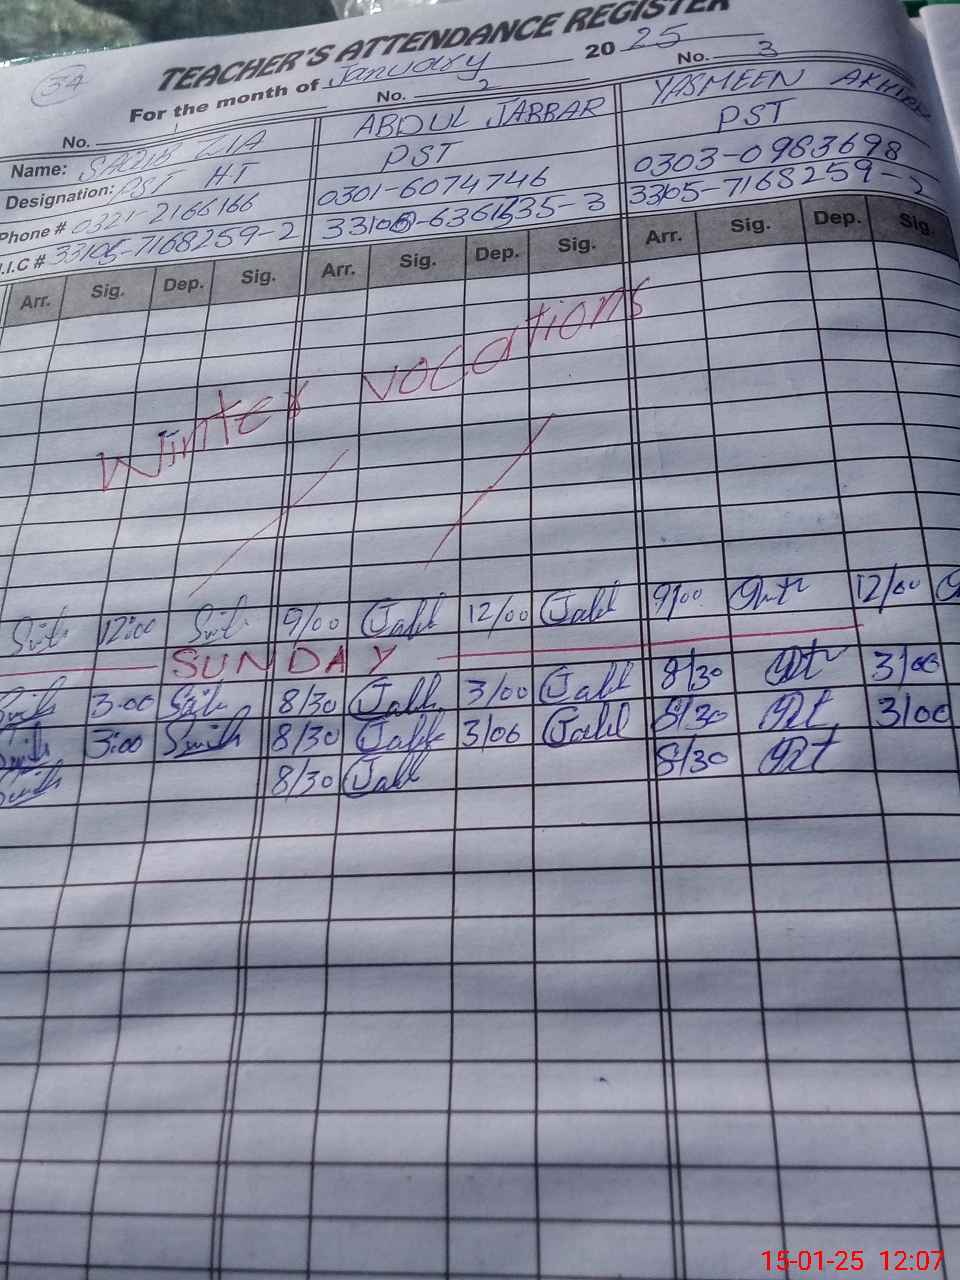 34
TEACHER'S ATTENDANCE REGISTER
For the month of January 2025
No. 1 No. 2 No. 3
Name: SADIR ZIA ABDUL JABBAR YASMEEN AKHTAR
Designation: PST HT PST PST
Phone # 0321-2166166 0301-6074746 0303-0983698
I.C # 33105-7168259-2 33100-6361535-3 33105-7168259-2
Arr. Sig. Dep. Sig. Arr. Sig. Dep. Sig. Arr. Sig. Dep. Sig.
Winter vocations
12:00 9/00 Jabb 12/00 Jabb 9/00 12/00
SUNDAY
3:00 8/30 Jabb 3/00 Jabb 8/30 3/00
3:00 8/30 Jabb 3/00 Jabb 8/30 3/00
8/30 Jabb 8/30
15-01-25 12:07